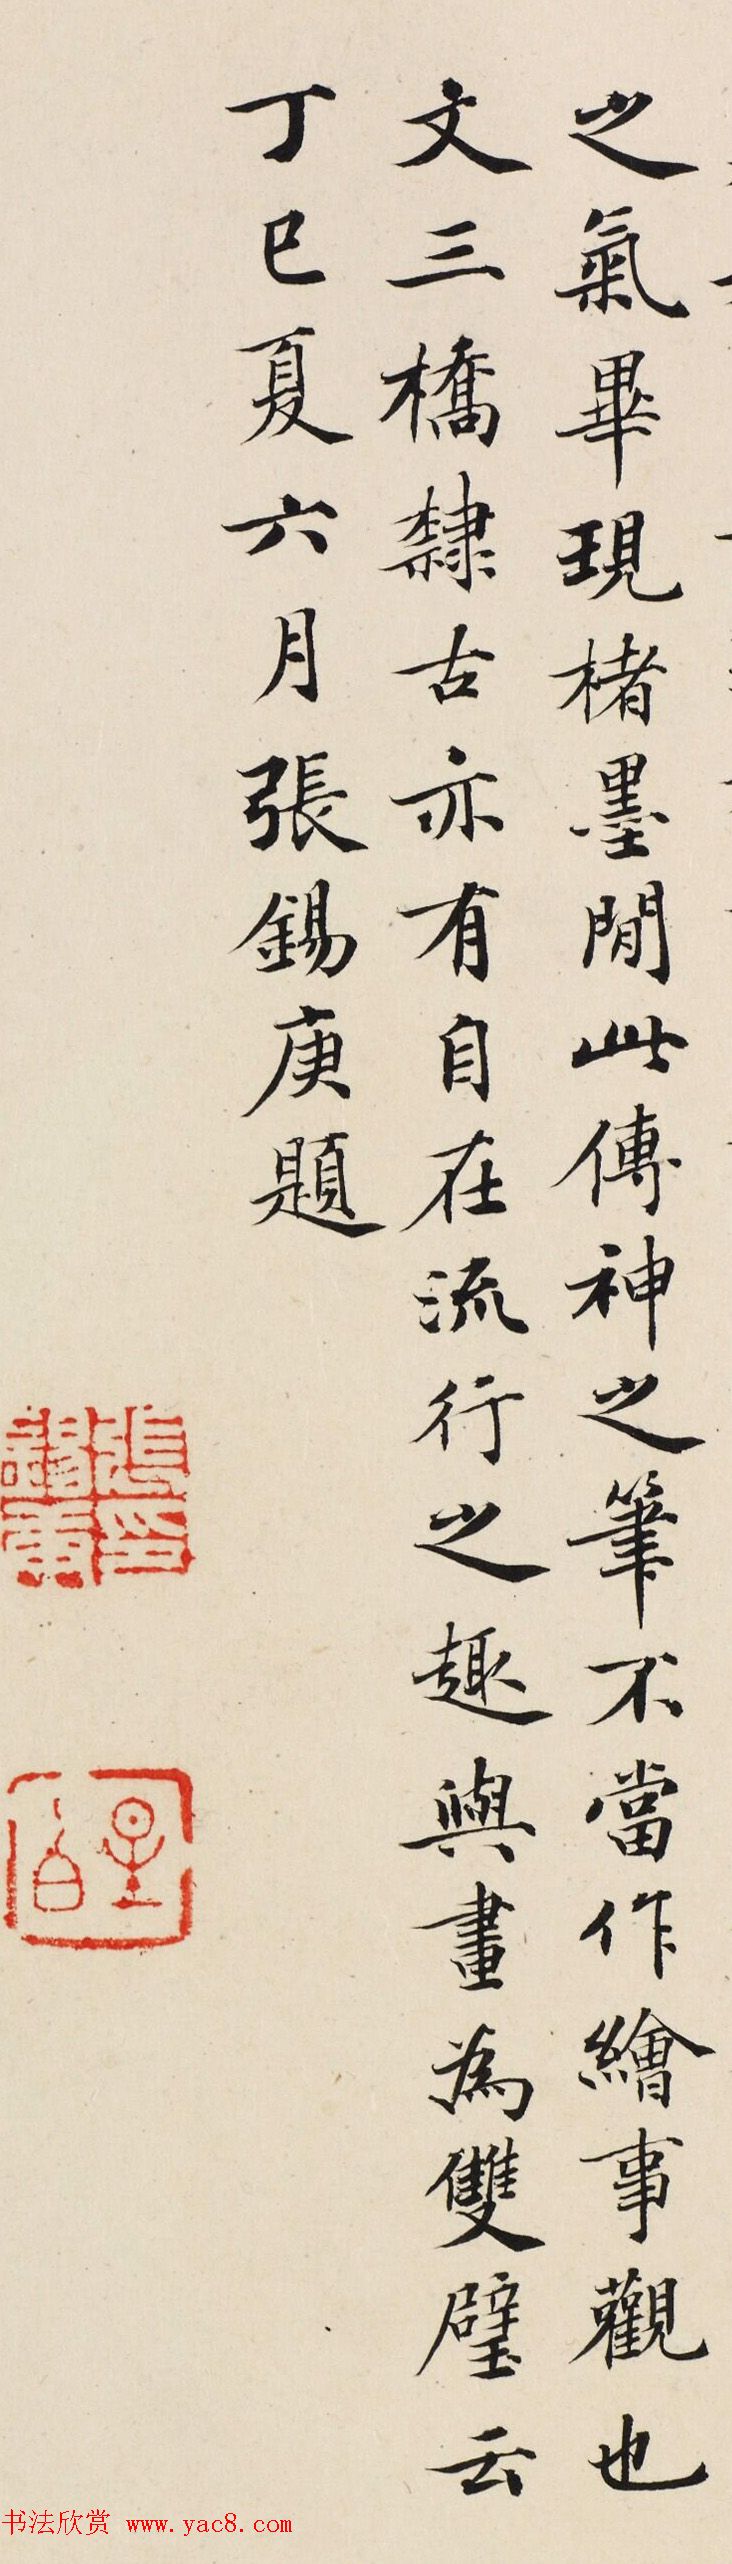 之氣畢現楮墨閒此傳神之筆不當作繪事觀也
文三橋隸古亦有自在流行之趣與畫為雙璧云
丁巳夏六月張錫庚題
书法欣赏 www.yac8.com